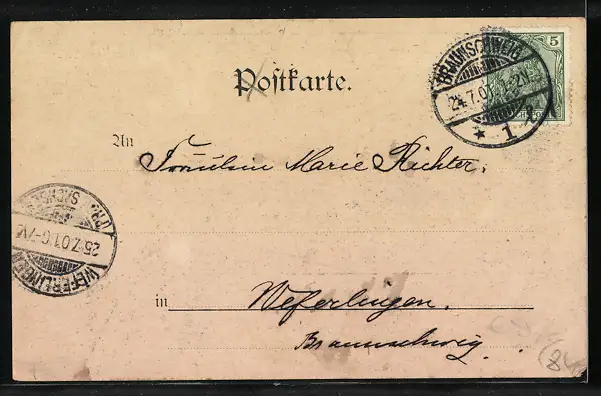 Postkarte.
BRAUNSCHWEIG
5
24.7.01.1-2N.
* 1
An Fräulein Marie Richter.
WEFERLINGEN
25.7.01.6-7V.
in Weferlingen.
Braunschwig.
(84